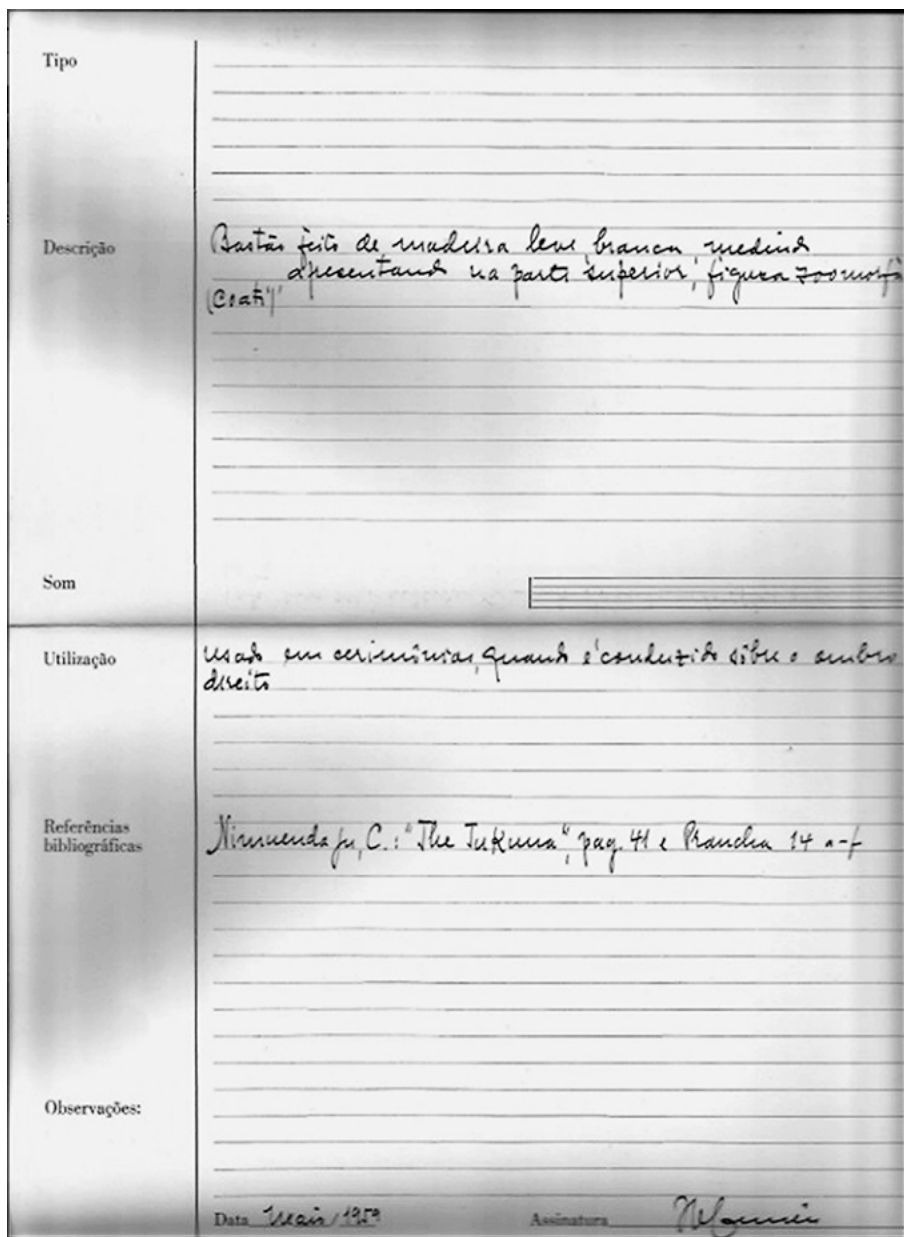 Tipo
Descrição
Bastão feito de madeira leve branca medindo
apresentando na parte superior, figura zoomorfa
(Coati)
Som
Utilização
usado em cerimônias, quando é conduzido sôbre o ombro
direito
Referências
bibliográficas
Nimuendaju, C.: "The Tukuna", pag. 41 e Prancha 14 a-f
Observações:
Data Maio/1959 Assinatura